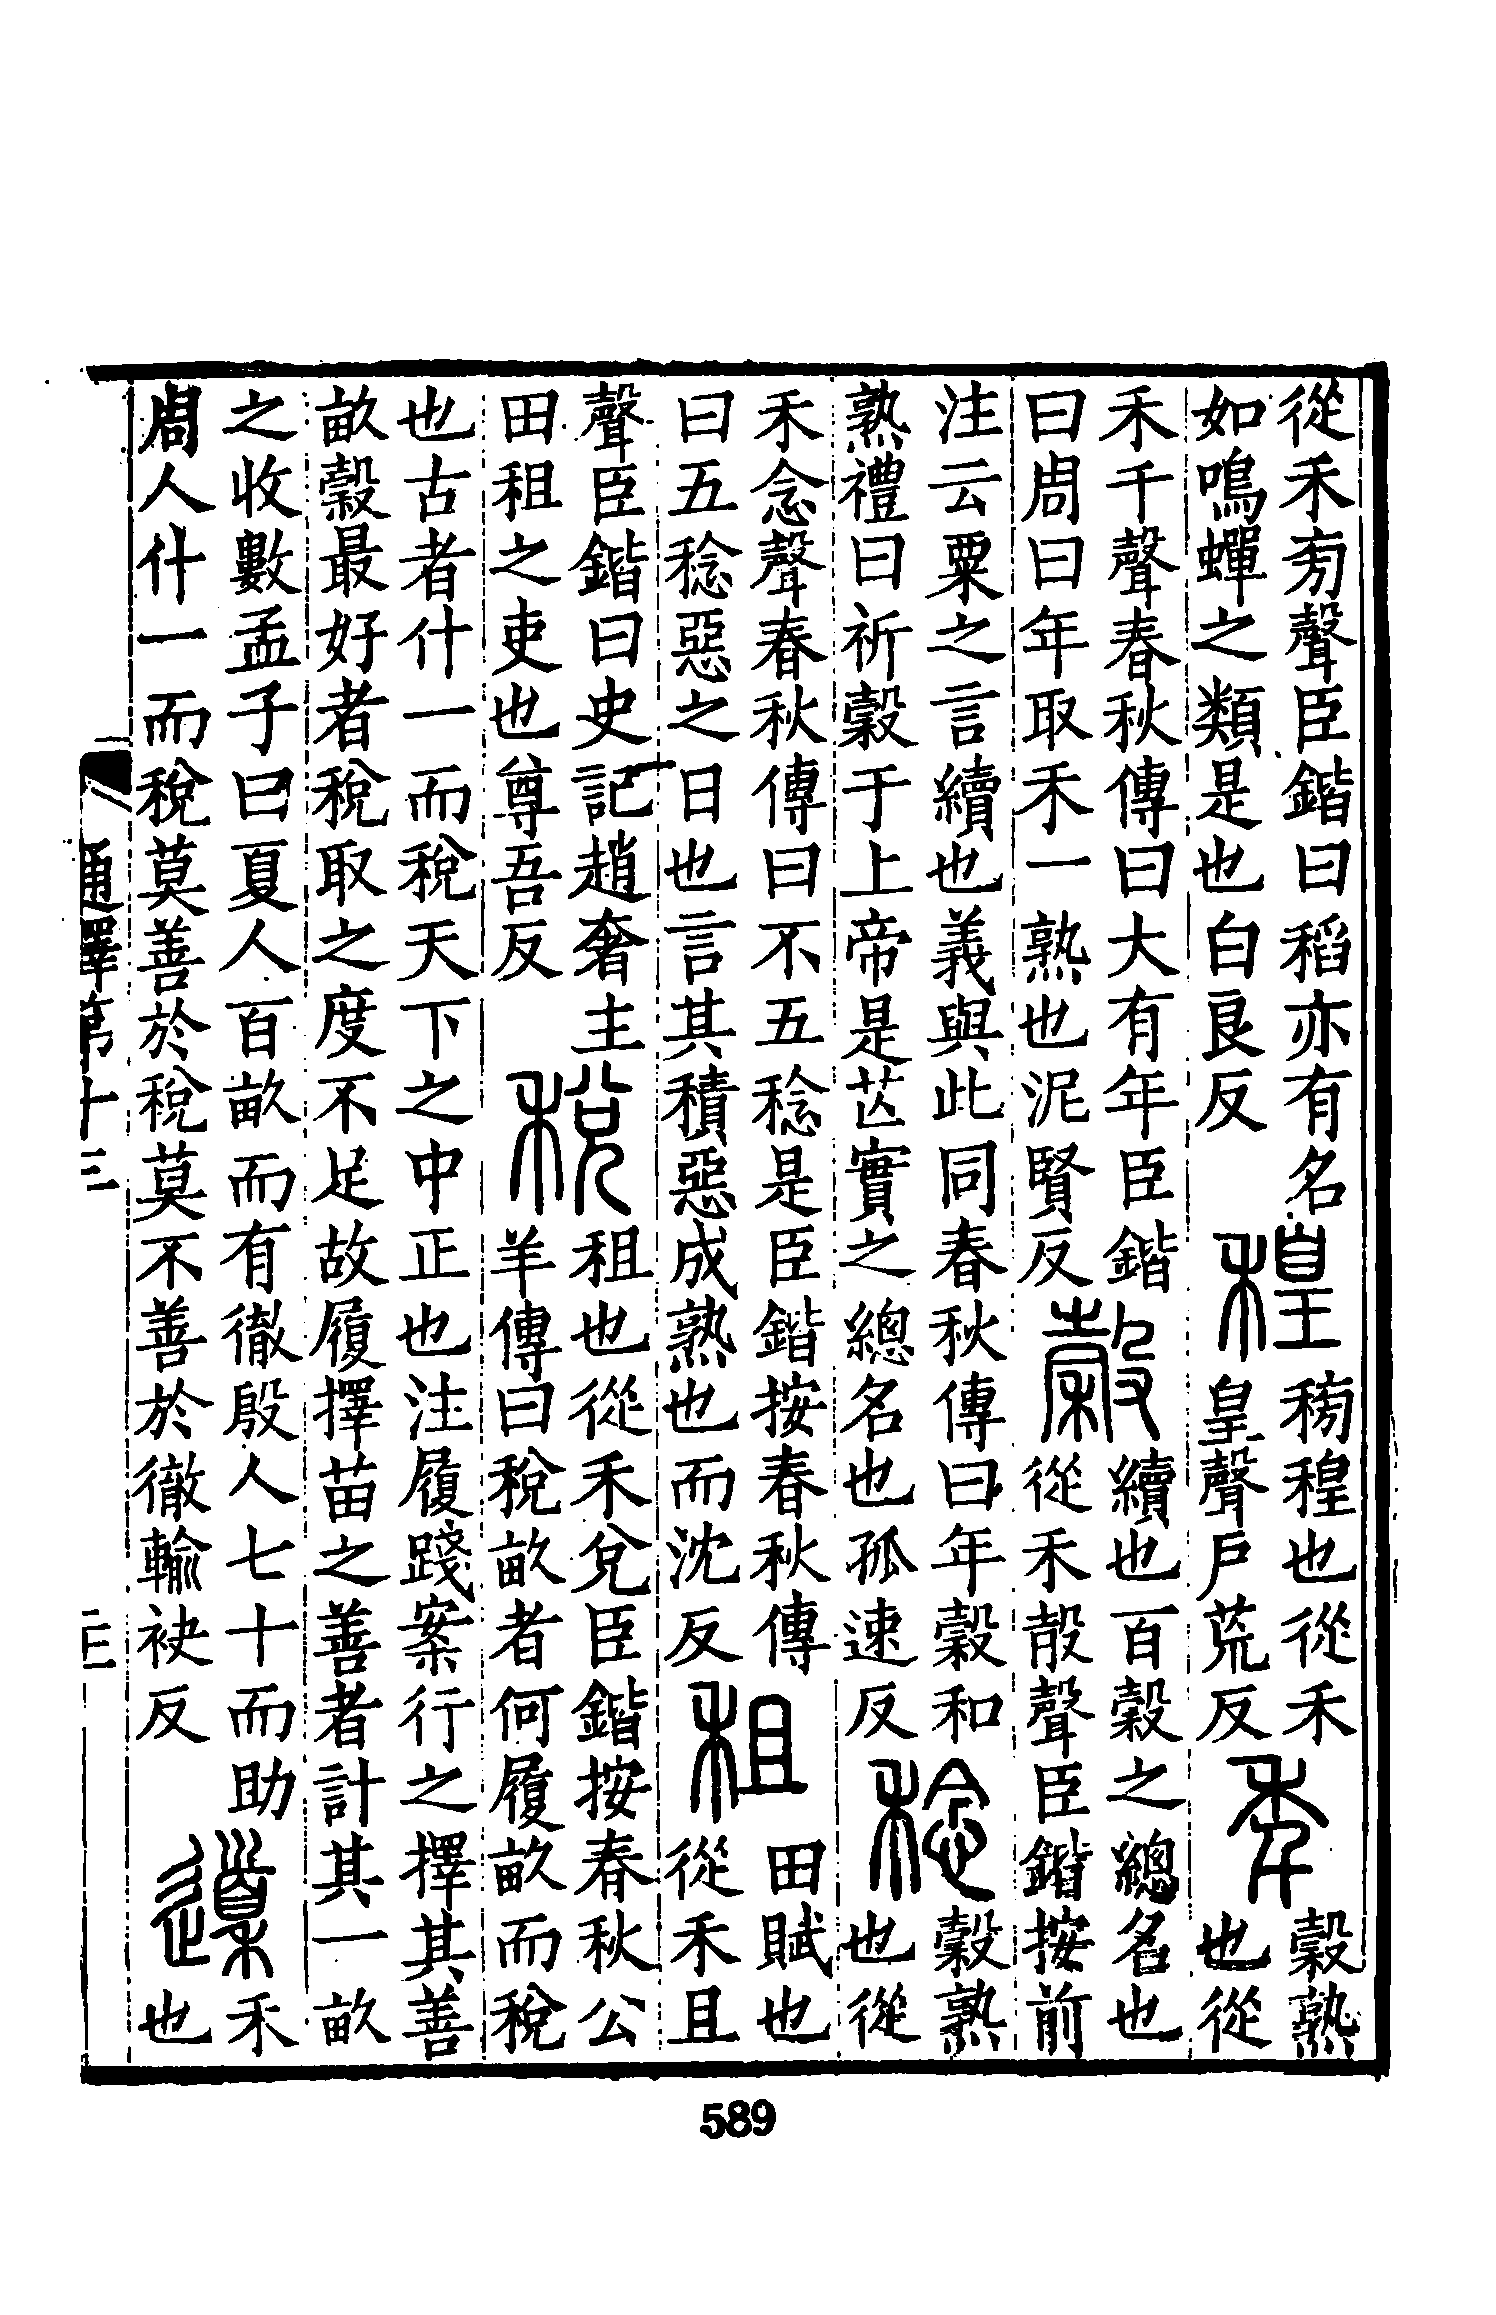 從禾㫄聲臣鍇曰稻亦有名
如鳴蟬之類是也白良反
䅣
䅭䅣也從禾
皇聲戶荒反
秊
穀熟
也從
禾千聲春秋傳曰大有年臣鍇
曰周曰年取禾一熟也泥賢反
穀
續也百穀之總名也
從禾㱿聲臣鍇按前
注云粟之言續也義與此同春秋傳曰年穀和
熟禮曰祈穀于上帝是芒實之總名也孤速反
稔
穀熟
也從
禾念聲春秋傳曰不五稔是臣鍇按春秋傳
曰五稔惡之日也言其積惡成熟也而沈反
租
田賦也
從禾且
聲臣鍇曰史記趙奢主
田租之吏也尊吾反
稅
租也從禾兌臣鍇按春秋公
羊傳曰稅畝者何履畝而稅
也古者什一而稅天下之中正也注履踐案行之擇其善
畝穀最好者稅取之度不足故履擇苗之善者計其一畝
之收數孟子曰夏人百畝而有徹殷人七十而助
周人什一而稅莫善於稅莫不善於徹輸袂反
䆃
禾
也
通釋第十三
三
589